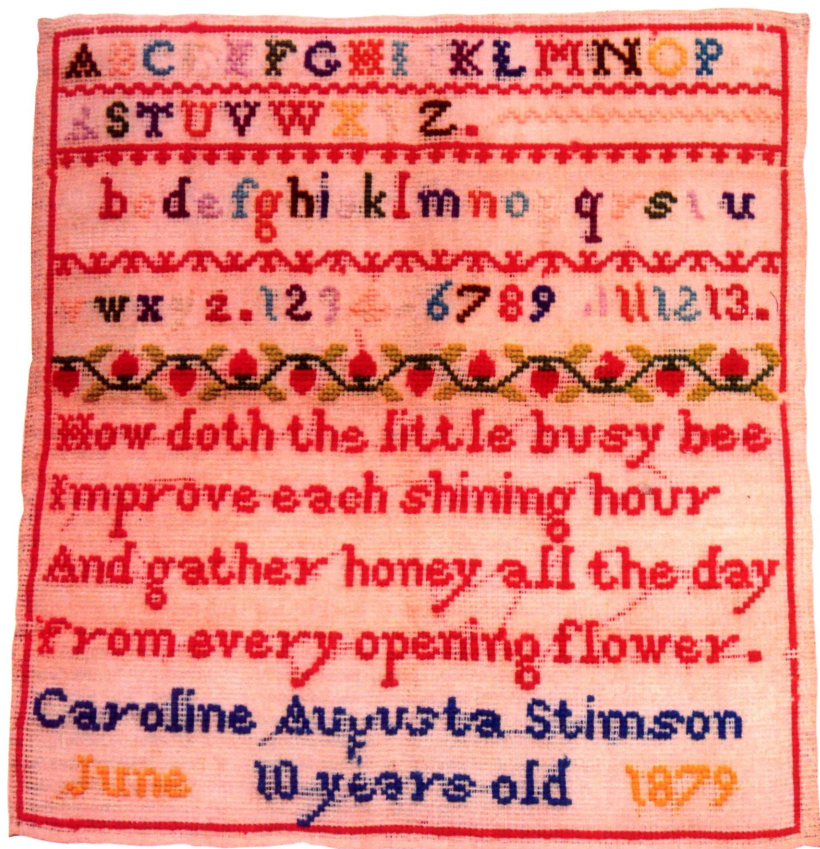 A B C D E F G H I J K L M N O P
S T U V W X Y Z.
b c d e f g h i j k l m n o p q r s t u
v w x y z. 1 2 3 4 5 6 7 8 9 11 12 13.
How doth the little busy bee
Improve each shining hour
And gather honey all the day
From every opening flower.
Caroline Augusta Stimson
June 10 years old 1879